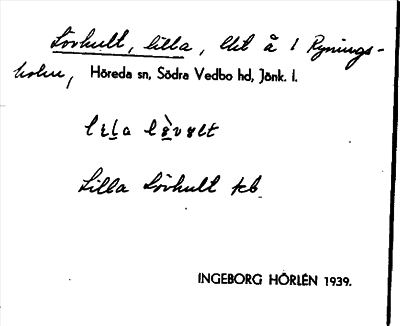 Lövhult, lilla, lht å 1 Rynings-
holm, Höreda sn, Södra Vedbo hd, Jönk. l.
Lilla Lövhult kb
INGEBORG HÖRLÉN 1939.